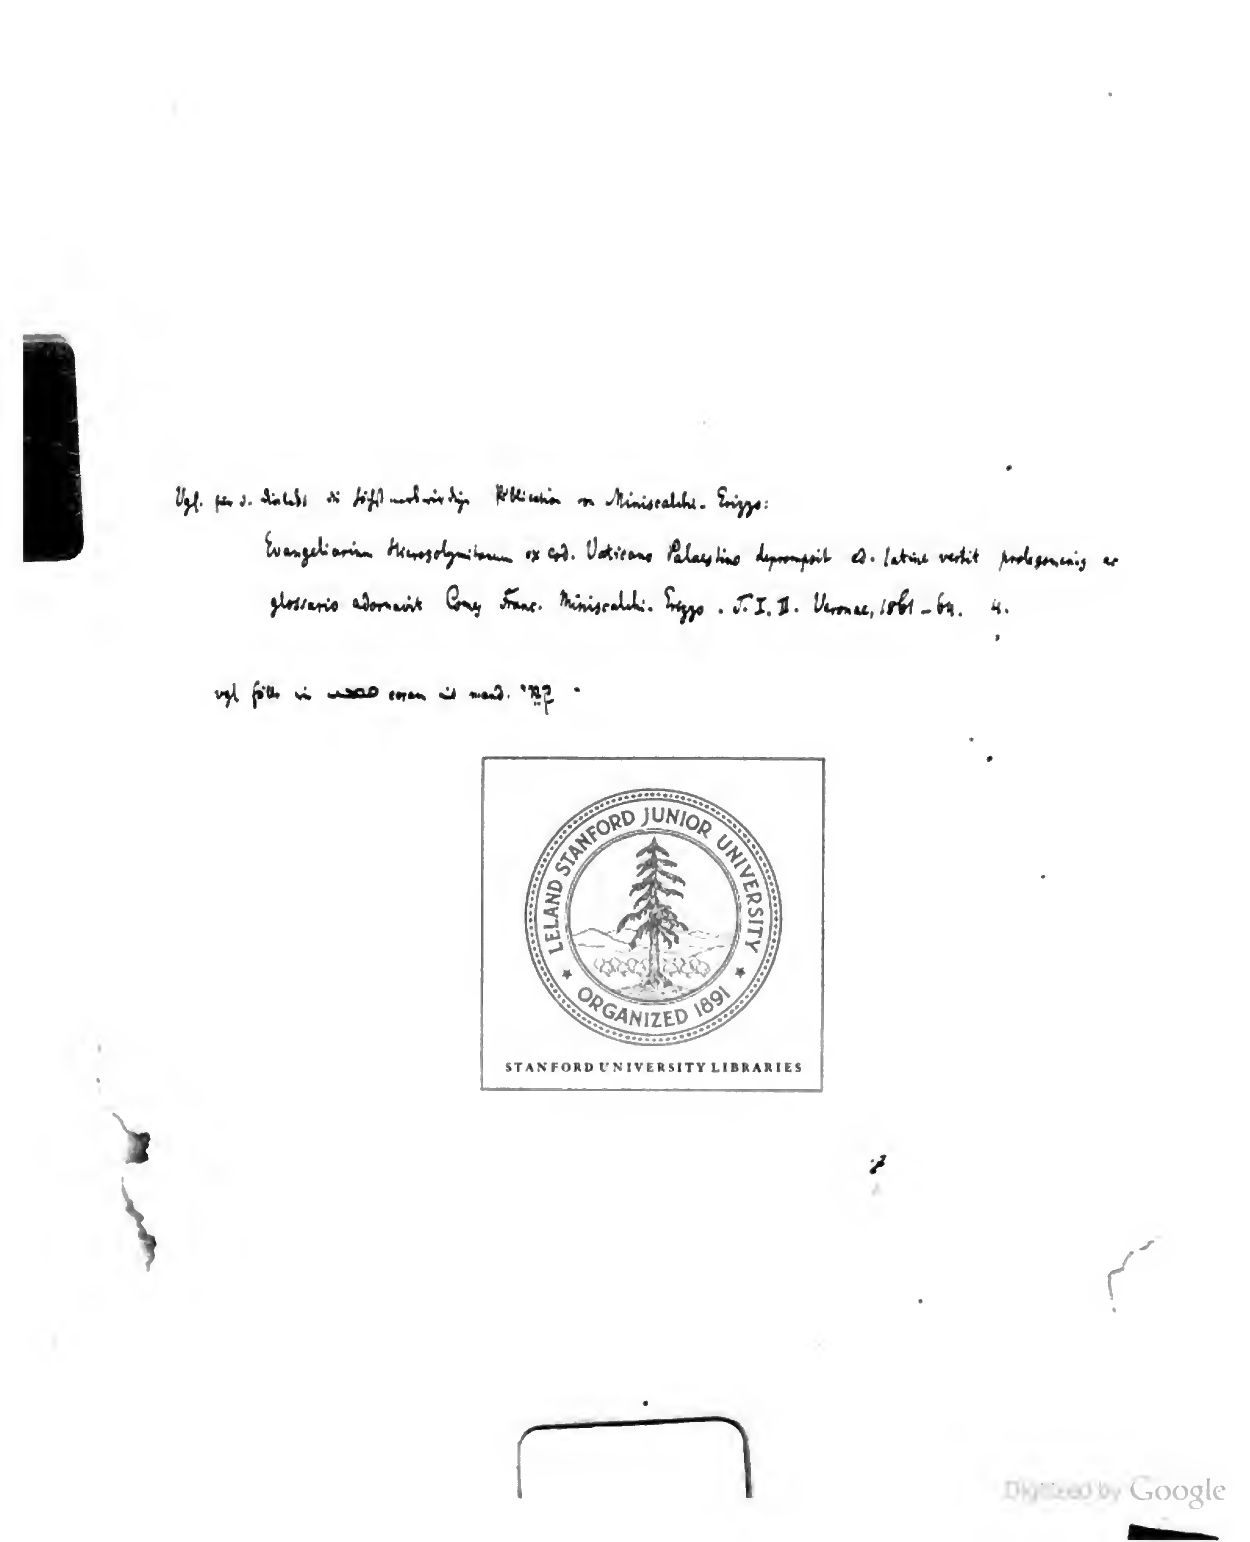 Vgl. für d. dialekt die höchst merkwürdige Publication von Miniscalchi-Erizzo:
Evangeliarium Hierosolymitanum ex cod. Vaticano Palaestino deprompsit ed. latine vertit prolegomenis ac
glossario adornavit Comes Franc. Miniscalchi-Erizzo. T. I, II. Veronae, 1861-64. 4.
vgl fälle wie mand.
LELAND STANFORD JUNIOR UNIVERSITY
ORGANIZED 1891
STANFORD UNIVERSITY LIBRARIES
Digitized by Google